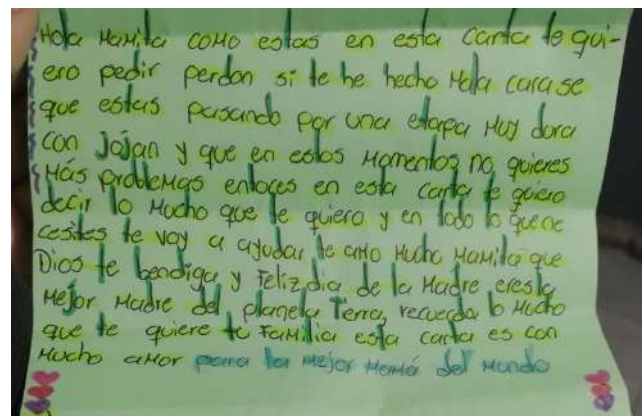 Hola Mamita como estas en esta carta te qui-
ero pedir perdon si te he hecho mala cara se
que estas pasando por una etapa muy dura
con Jojan y que en estos momentos no quieres
más problemas entoces en esta carta te quiero
decir lo mucho que te quiero y en todo lo que ne
cesites te voy a ayudar te amo mucho mamita que
Dios te bendiga y Feliz dia de la Madre eres la
mejor madre del planeta Tierra, recuerda lo mucho
que te quiere tu familia esta carta es con
mucho amor para la mejor mamá del mundo